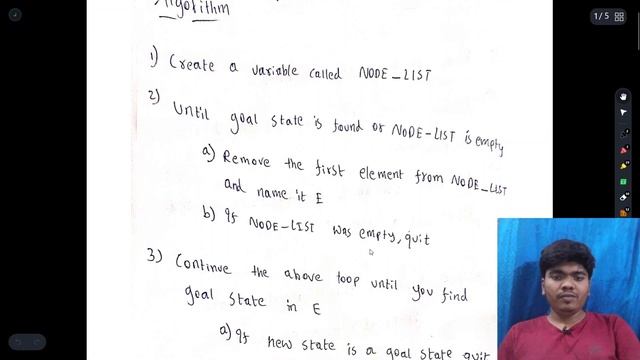 Algorithm
1 / 5
1) Create a variable called NODE_LIST
2)
Until goal state is found or NODE-LIST is empty
a) Remove the first element from NODE_LIST
and name it E
b) If NODE-LIST was empty, quit
3) Continue the above loop until you find
goal state in E
a) If new state is a goal state quit